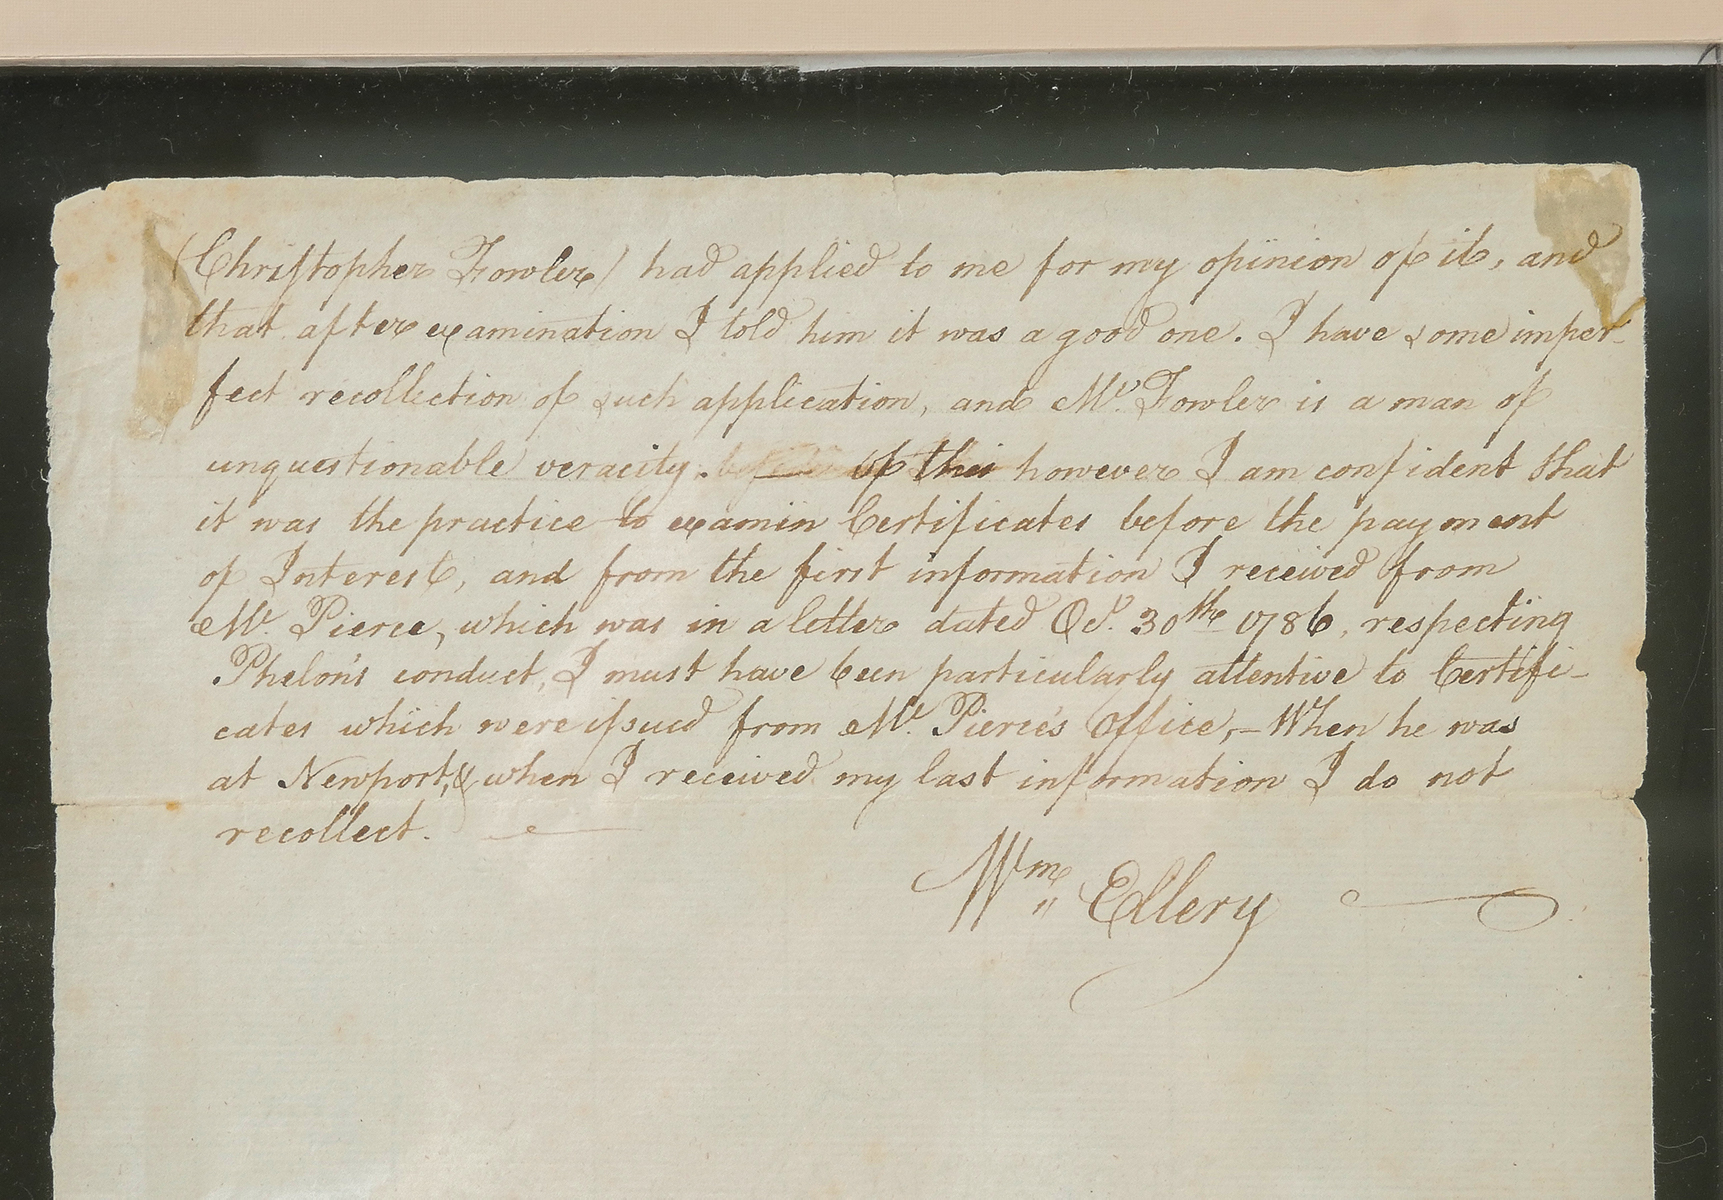 (Christopher Fowler) had applied to me for my opinion of it, and
that after examination I told him it was a good one. I have some imper-
fect recollection of such application, and Mr. Fowler is a man of
unquestionable veracity. of this however I am confident that
it was the practice to examin Certificates before the payment
of Interest, and from the first information I received from
Mr. Pierce, which was in a letter dated Oct. 30th 1786, respecting
Phelon's conduct, I must have been particularly attentive to Certifi-
cates which were issued from Mr. Pierce's Office, – When he was
at Newport, & when I received my last information I do not
recollect.
Wm Ellery